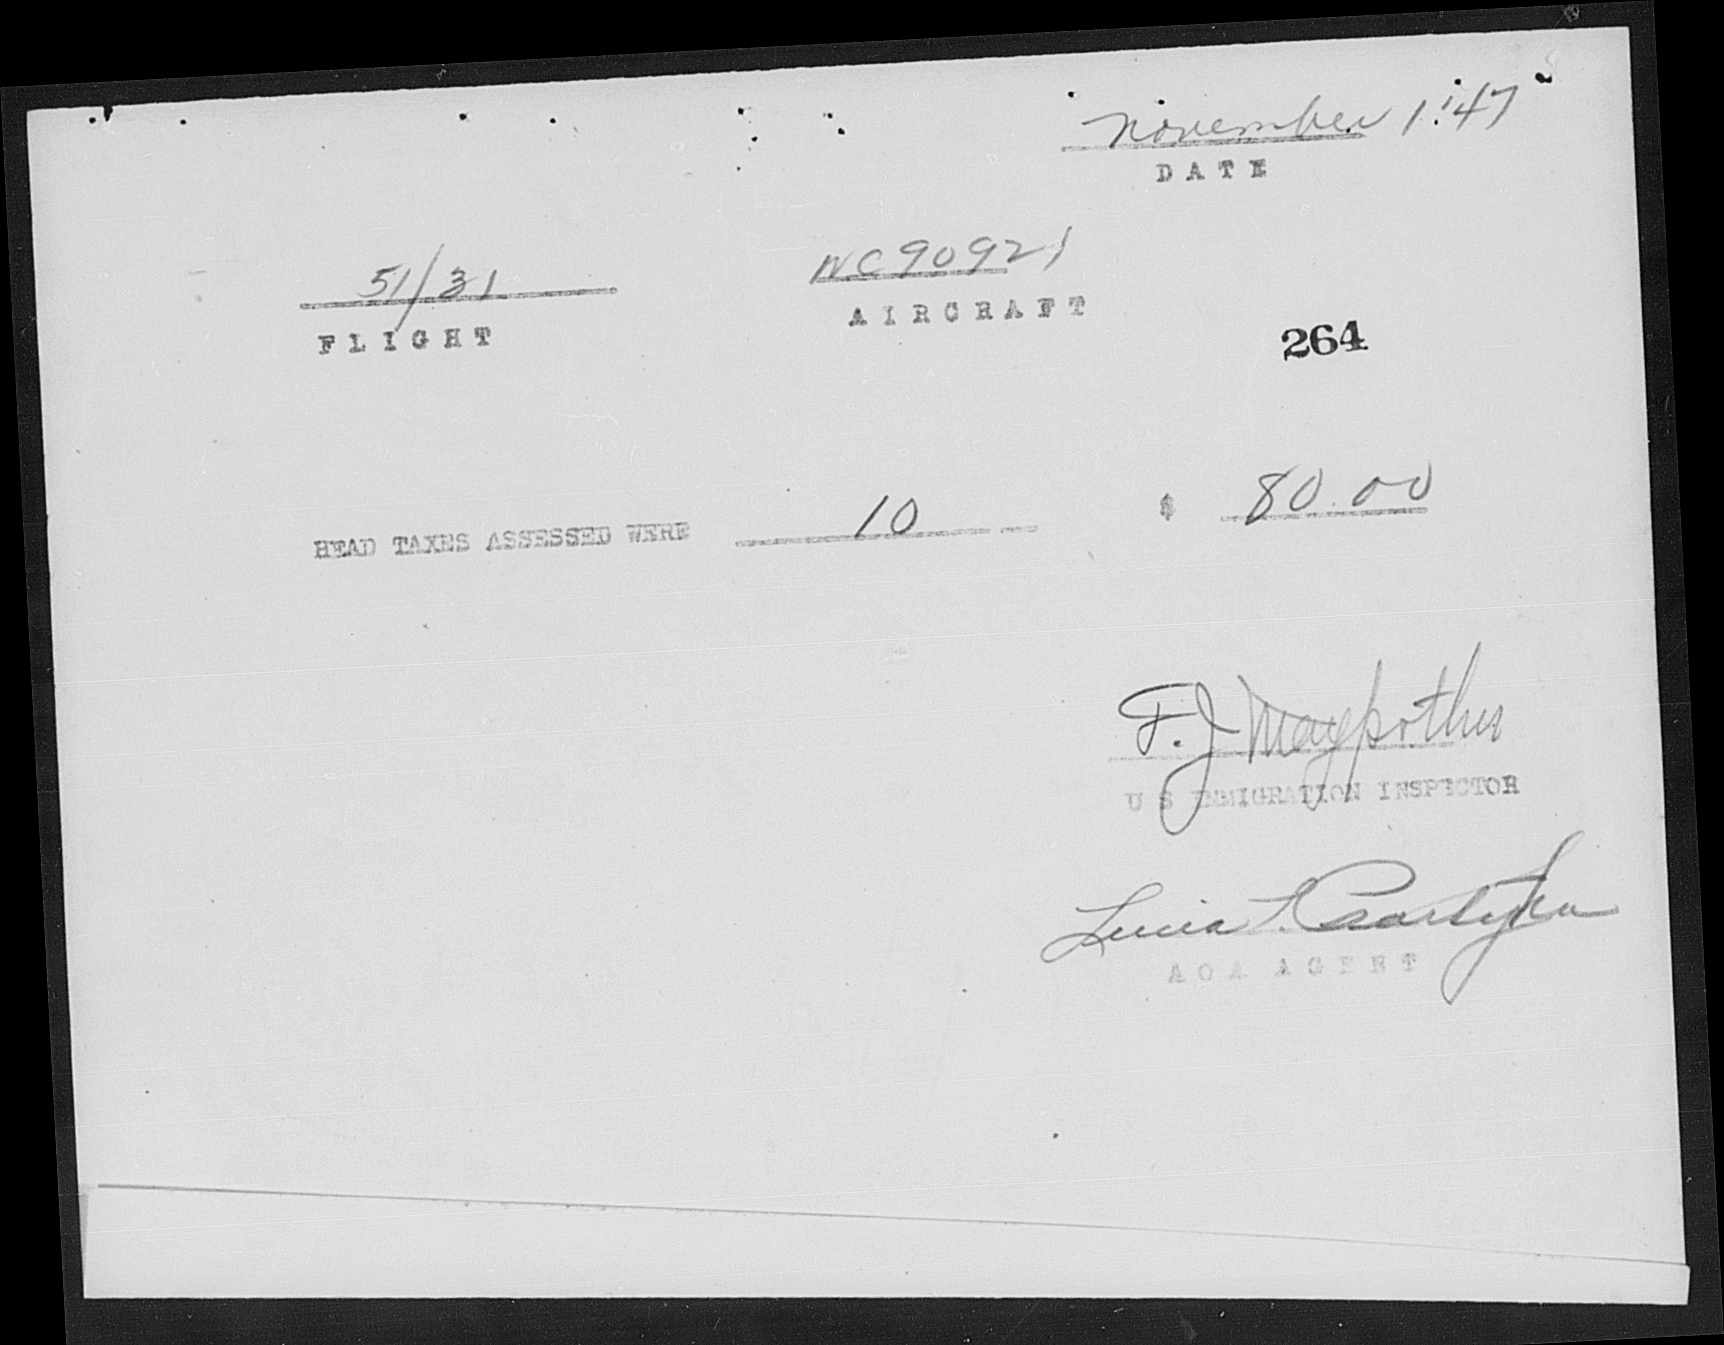 November 1, '47
DATE
51/31
FLIGHT
NC90921
AIRCRAFT
264
HEAD TAXES ASSESSED WERE 10 $ 80.00
F. J.
U S IMMIGRATION INSPECTOR
Lucia
AOA AGENT